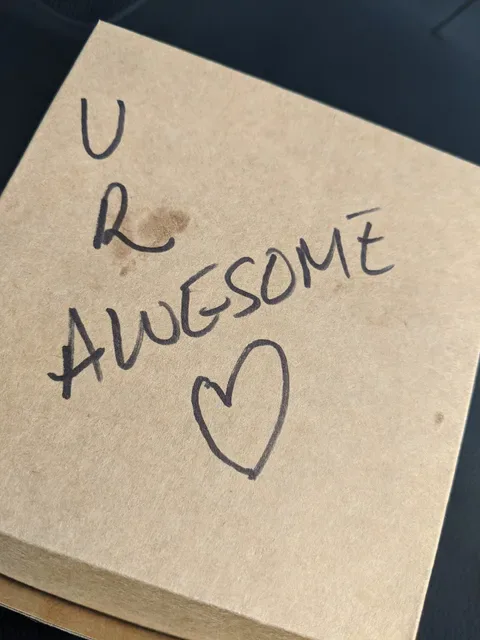 U
R
AWESOME